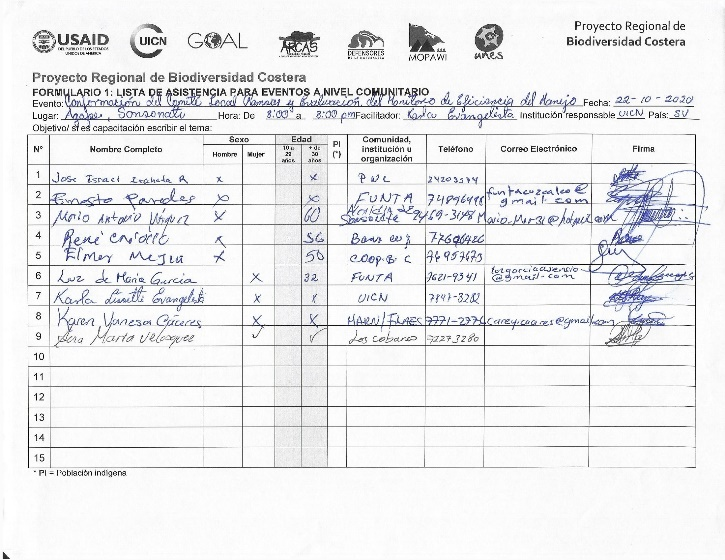 USAID
DEL PUEBLO DE LOS ESTADOS
UNIDOS DE AMÉRICA
UICN
GOAL
ARCAS
DEFENSORES
MOPAWI
unes
Proyecto Regional de
Biodiversidad Costera
Proyecto Regional de Biodiversidad Costera
FORMULARIO 1: LISTA DE ASISTENCIA PARA EVENTOS A NIVEL COMUNITARIO
Evento: Conformación del Comité Local Ramsar y Evaluación del Monitoreo de Eficiencia del Manejo Fecha: 22-10-2020
Lugar: Agape, Sonsonate Hora: De 8:00 a 8:00 pm Facilitador: Karla Evangelista Institución responsable UICN País: SV
Objetivo/ si es capacitación escribir el tema:
N° Nombre Completo Sexo Hombre Mujer Edad 10 a 29 años + de 30 años PI (*) Comunidad, institución u organización Teléfono Correo Electrónico Firma
1 Jose Israel R x x PWC
2 Ernesto Paredes x x FUNTA 74896498 @gmail.com
3 Mario Antonio x 60 Alcaldía de Sonsonate 2469-3148
4 René x 56
5 Elmer Mejia x 50 COOP B C 76957673
6 Luz de Maria Garcia x 32 FUNTA 7621-9341 @gmail-com
7 Karla Lissette Evangelista x x UICN 7847-3202
8 Karen Vanesa Cáceres x x MARN/ 7771-277
9 Ana Marta Velasquez ✓ ✓ Los Cobanos 72273280
10
11
12
13
14
15
* PI = Población indígena